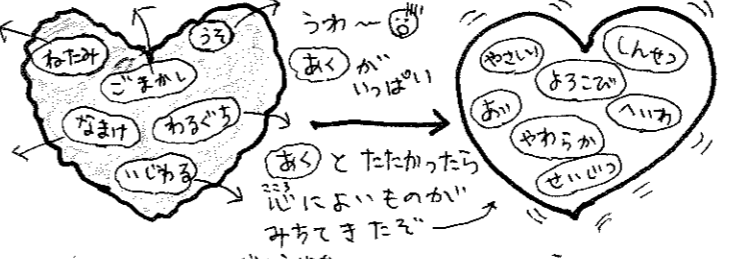 ねたみ
うそ
ごまかし
なまけ
わるぐち
いじわる
うわ～
あくが
いっぱい
あくとたたかったら
こころ
心によいものが
みちてきたぞ
やさしい
しんせつ
よろこび
あい
へいわ
やわらか
せいじつ